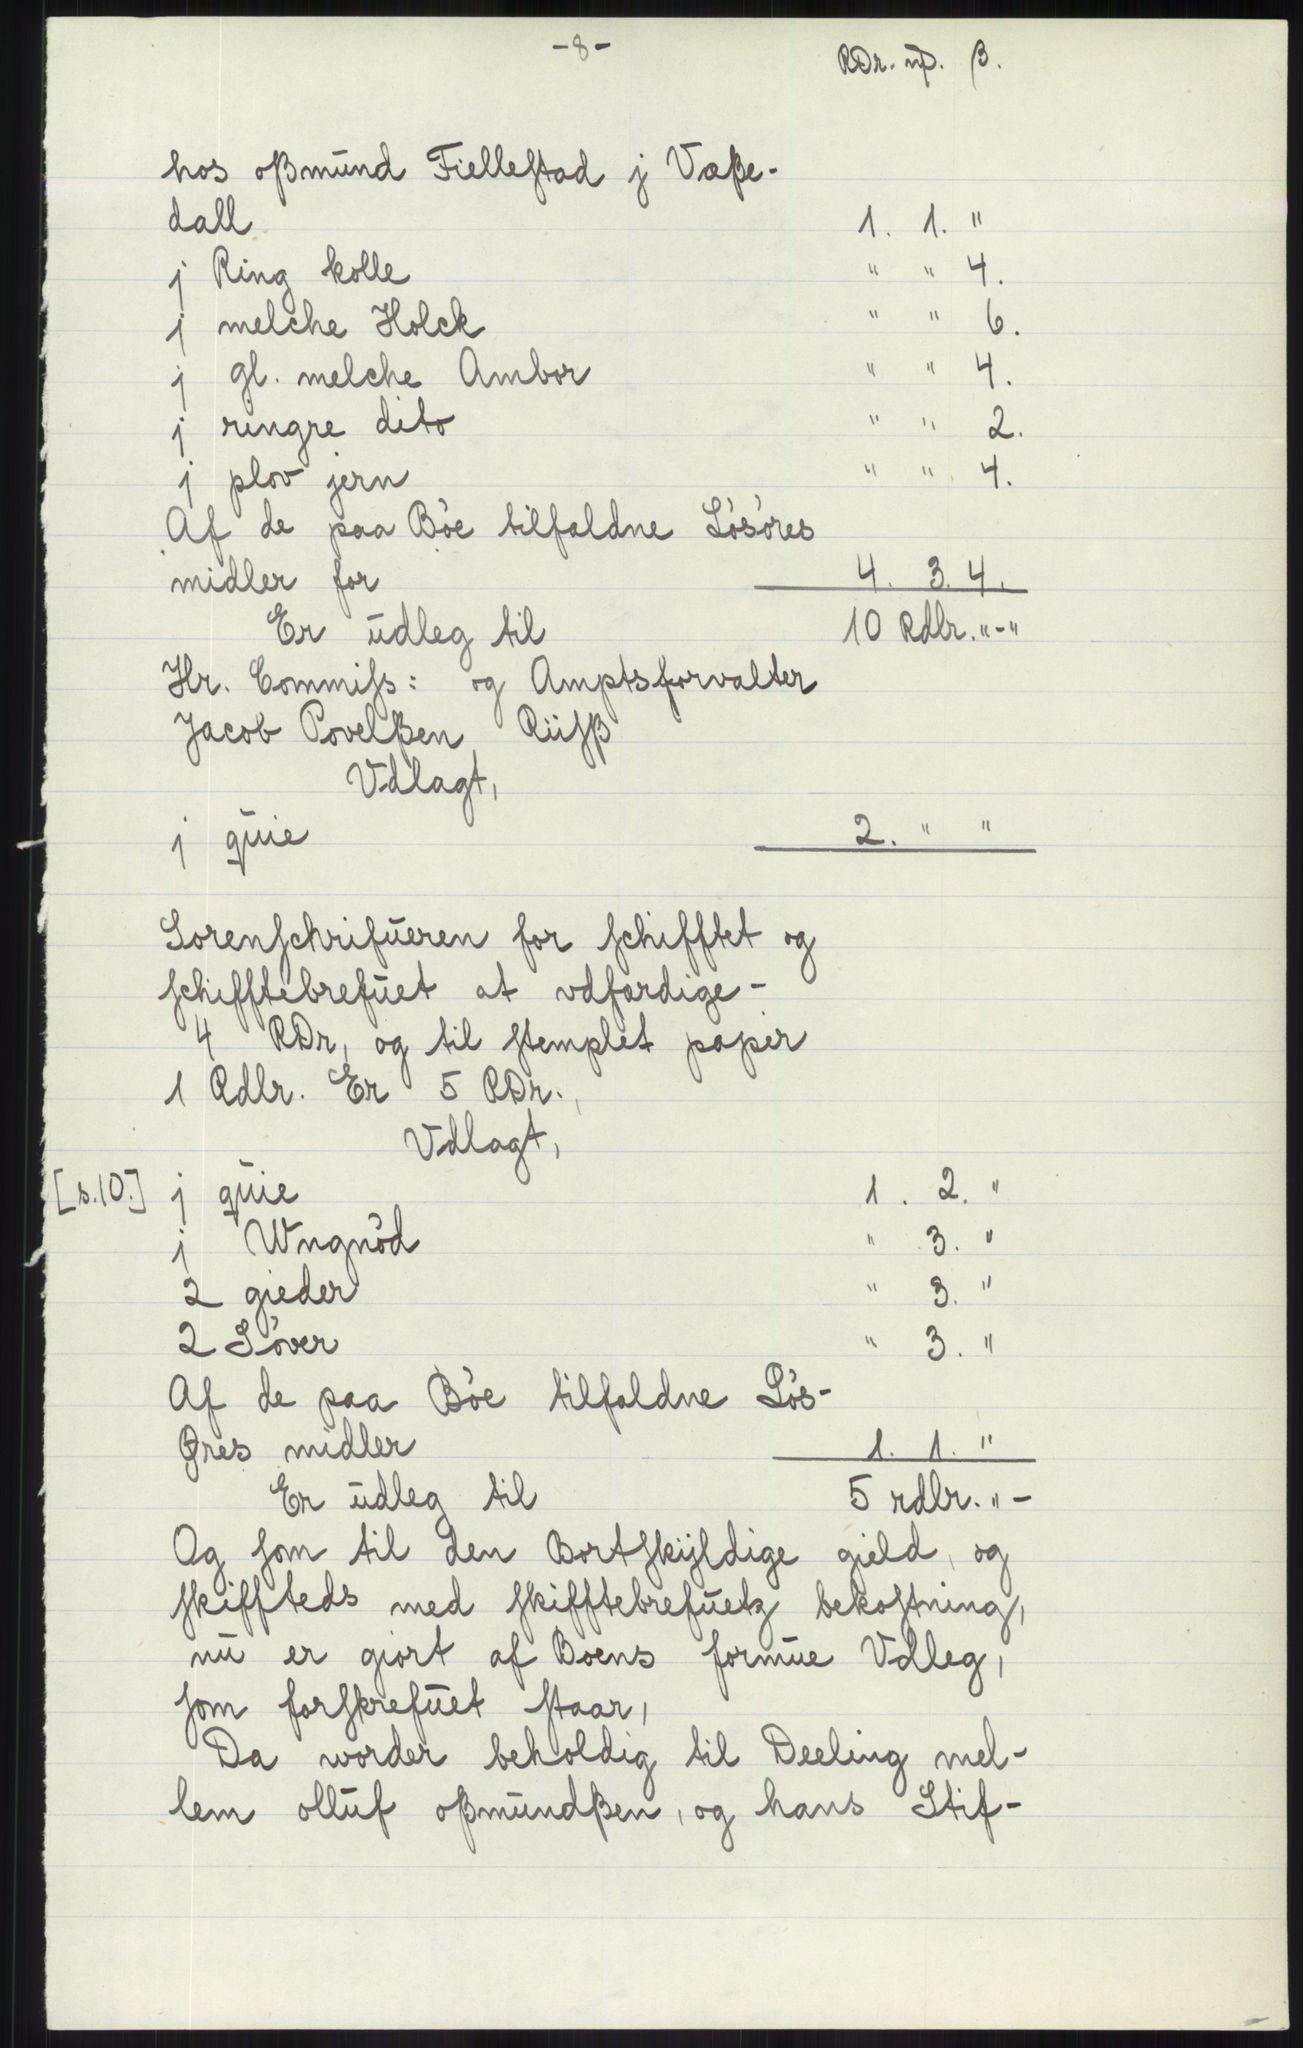 -8-
RDr. mp. β.
hos oßmund Fiellestad j Vaße-
dall 1. 1. "
j Ring kolle " " 4.
j melche Holck " " 6.
j gl. melche Ambor " " 4.
j ringre dito " " 2.
j plov jern " " 4.
Af de paa Böe tilfaldne Lösöres
midler for 4. 3. 4.
Er udleg til 10 Rdlr. "-"
Hr. Commiss: og Amptsforvalter
Jacob Povelßen Riisß
Vdlagt,
j quie 2. " "
Sorenschrifueren for schifftet og
schifftebrefuet at vdfærdige-
4 RDr, og til stemplet papir
1 Rdlr. Er 5 RDr.,
Vdlagt,
[s.10.] j quie 1. 2. "
j Wngnöd " 3. "
2 gieder " 3. "
2 Söver " 3. "
Af de paa Böe tilfaldne Lös-
Øres midler 1. 1. "
Er udleg til 5 rdlr. " -
Og som til den Bortskyldige gield, og
skiffteds med skifftebrefuetz bekostning,
nu er giort af Boens formue Vdleg,
som forskrefuet staar,
Da worder beholdig til Deeling mel-
lem olluf oßmundßen, og hans Stif-